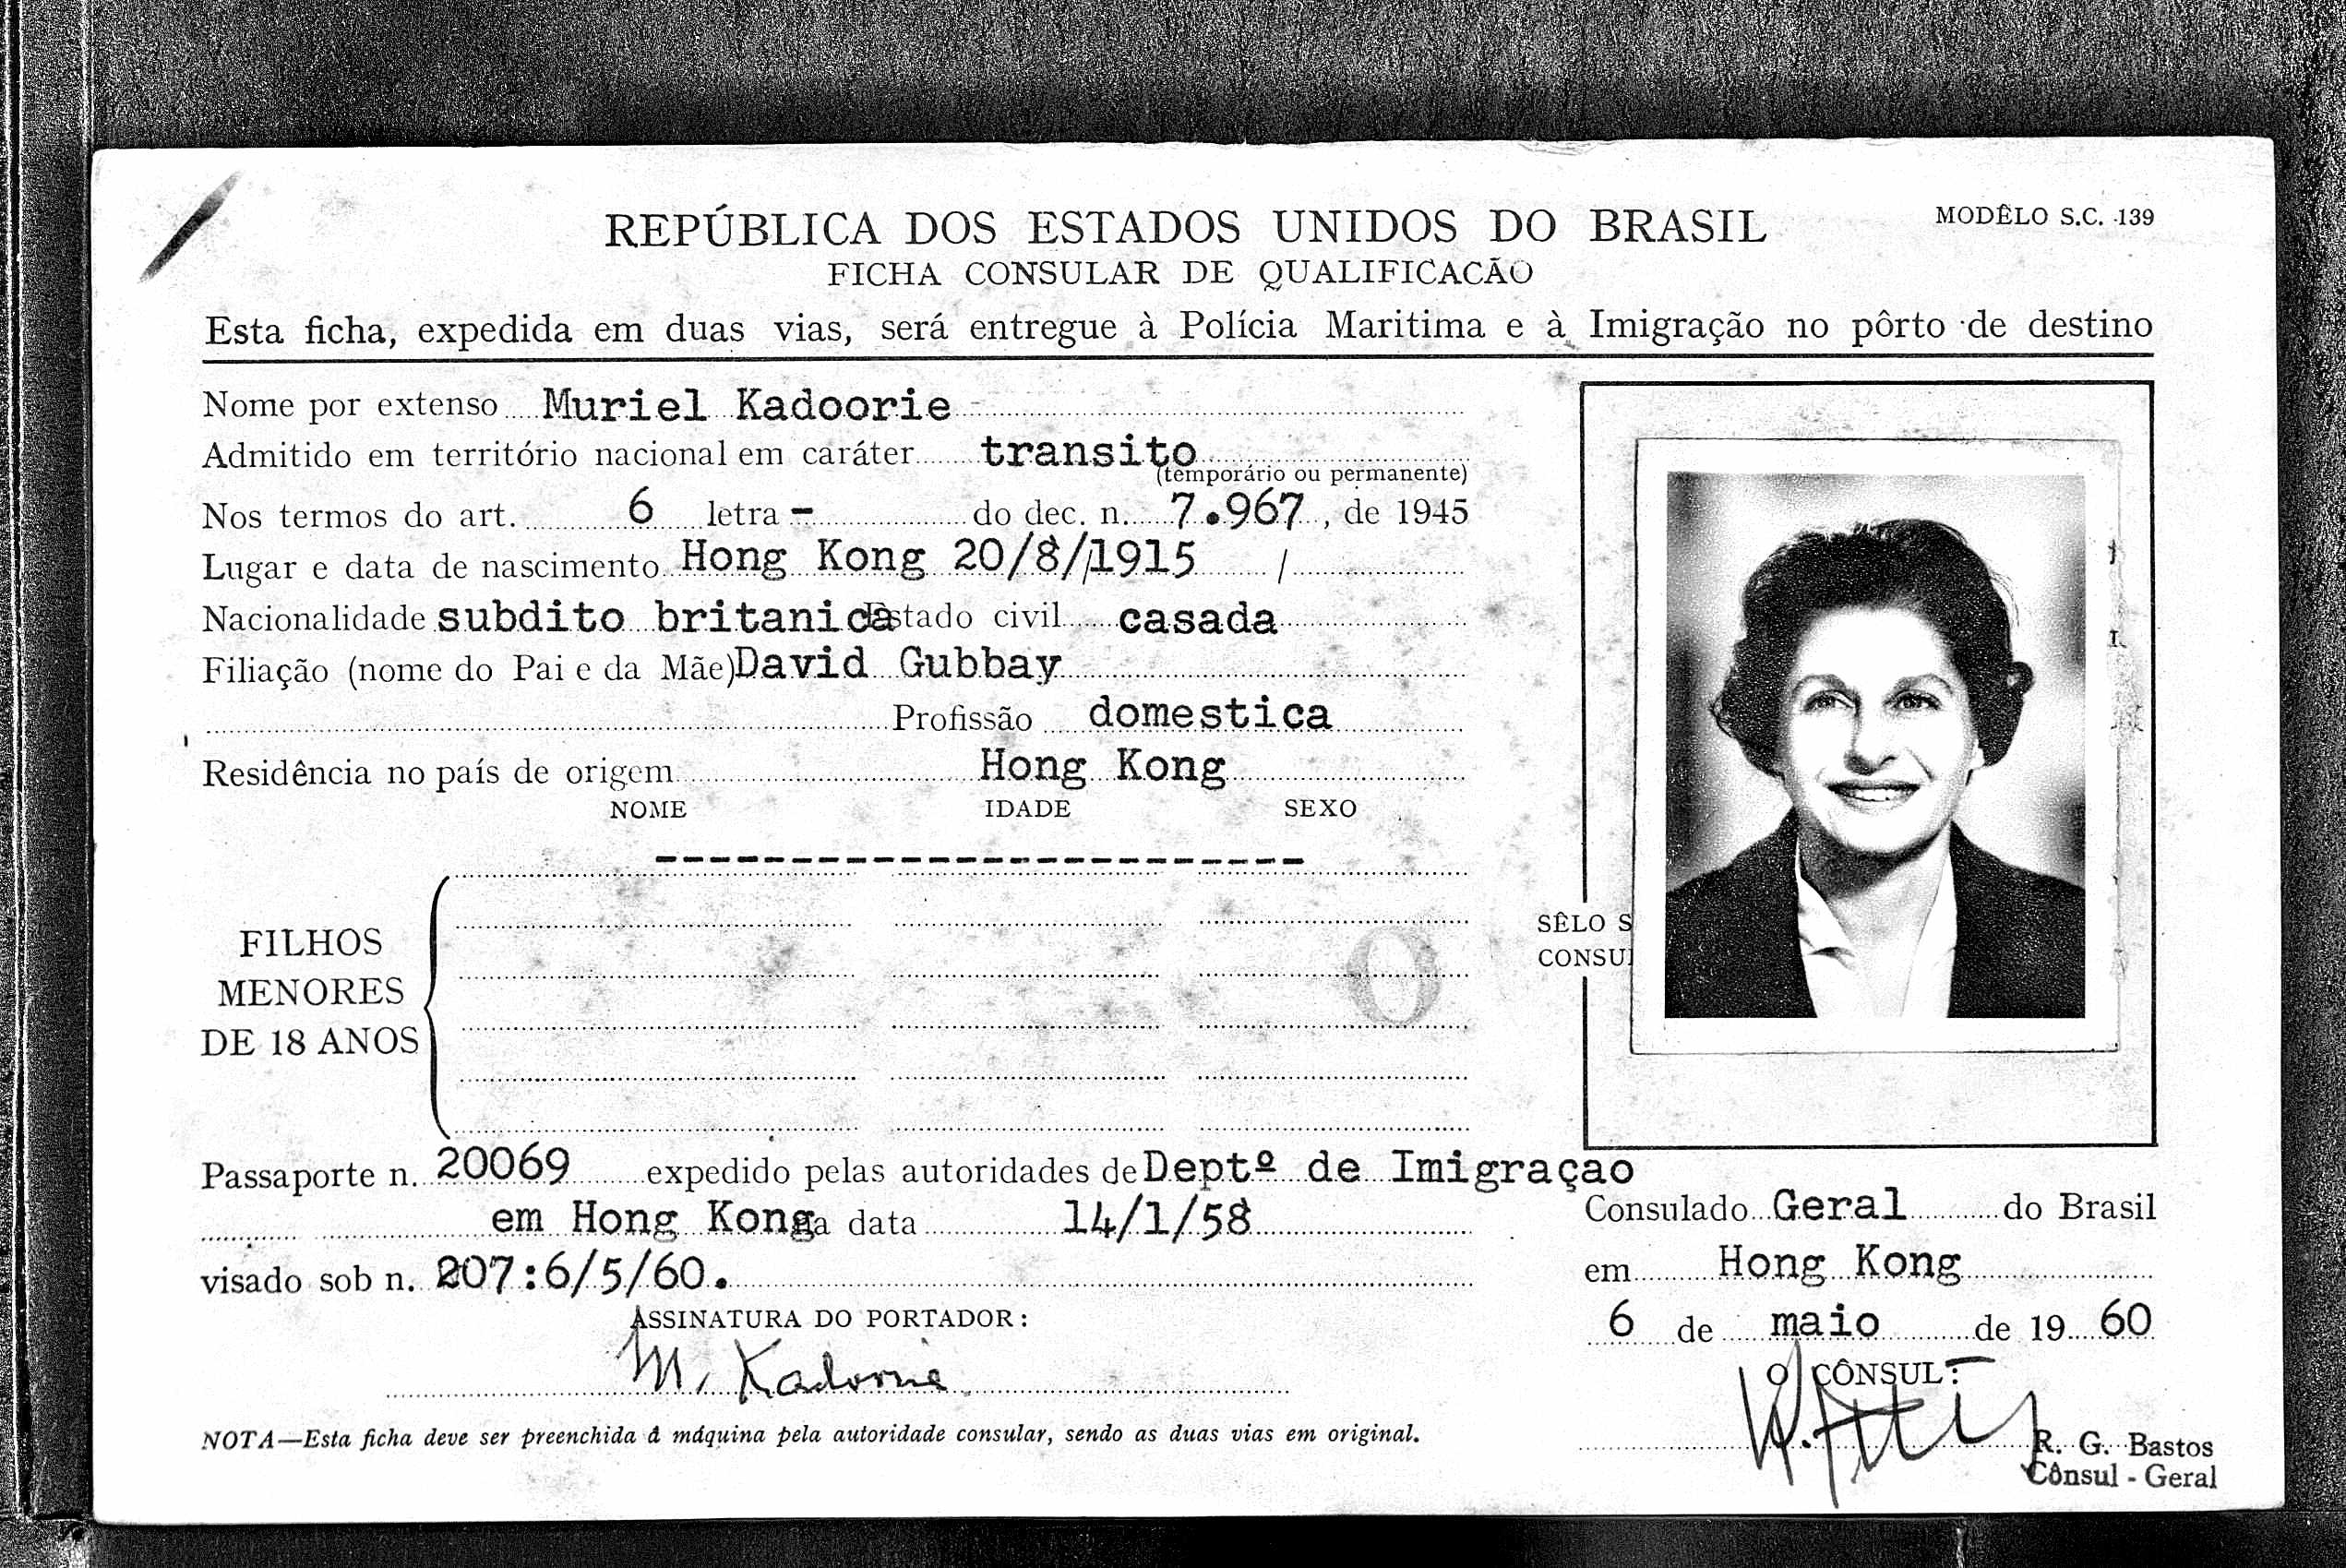 REPÚBLICA DOS ESTADOS UNIDOS DO BRASIL
MODÊLO S.C. 139
FICHA CONSULAR DE QUALIFICACÃO
Esta ficha, expedida em duas vias, será entregue à Polícia Maritima e à Imigração no pôrto de destino
Nome por extenso Muriel Kadoorie
Admitido em território nacional em caráter transito
(temporário ou permanente)
Nos termos do art. 6 letra - do dec. n. 7.967, de 1945
Lugar e data de nascimento Hong Kong 20/8/1915 /
Nacionalidade subdito britanica Estado civil casada
Filiação (nome do Pai e da Mãe) David Gubbay
Profissão domestica
Residência no país de origem Hong Kong
NOME IDADE SEXO
FILHOS
MENORES
DE 18 ANOS
O
SÊLO S
CONSU
Passaporte n. 20069 expedido pelas autoridades de Deptº de Imigraçao
em Hong Kong na data 14/1/58
visado sob n. 207:6/5/60.
ASSINATURA DO PORTADOR:
M. Kadoorie
NOTA—Esta ficha deve ser preenchida á máquina pela autoridade consular, sendo as duas vias em original.
Consulado Geral do Brasil
em Hong Kong
6 de maio de 19 60
O CÔNSUL:
R. G. Bastos
Cônsul - Geral